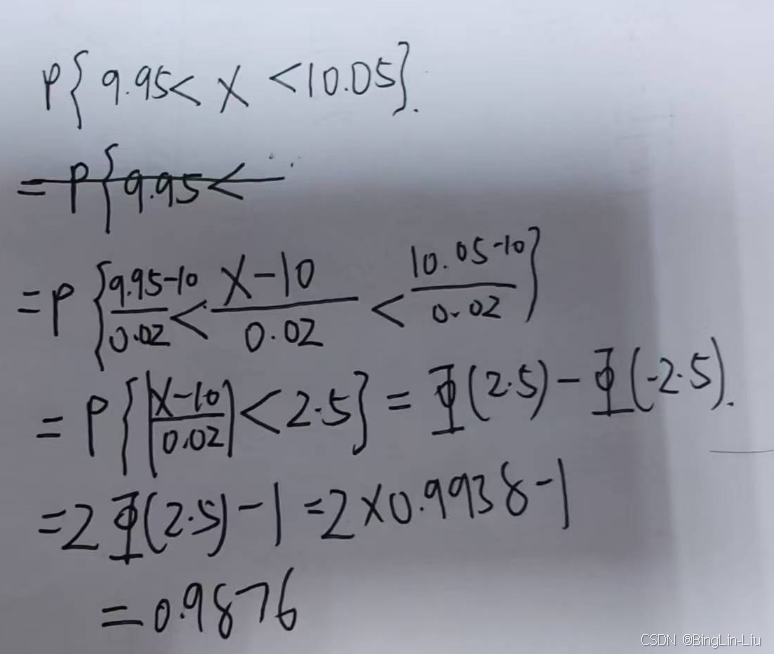 P{9.95< X <10.05}.
=P{9.95<
=P{(9.95-10)/0.02 < (X-10)/0.02 < (10.05-10)/0.02}
=P{|(X-10)/0.02|<2.5} = Φ(2.5)-Φ(-2.5).
=2Φ(2.5)-1=2×0.9938-1
=0.9876
CSDN @BingLin-Liu